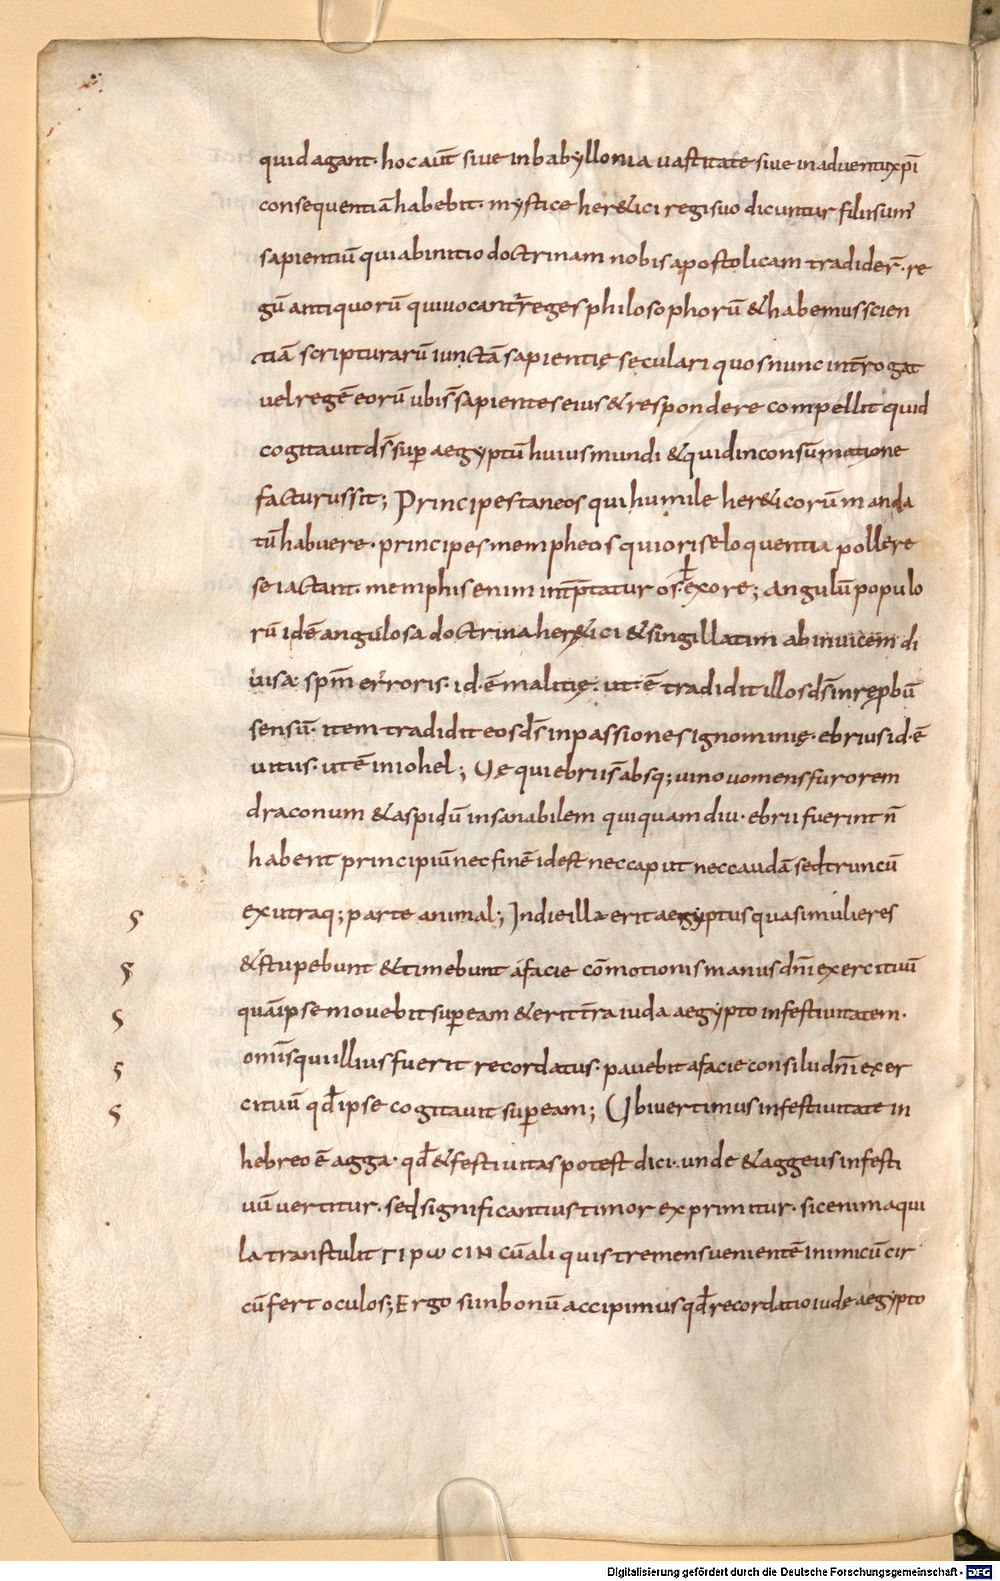 quid agant· hoc aut̄ siue in babyllonia uastitate siue in aduentu xp̄i
consequentiā habebit· mystice her&ici regi suo dicuntur filii sum̄
sapientiū qui ab initio doctrinam nobis apostolicam tradider̄· re
gū antiquorū qui uocant̄ reges philosophorū & habemus scien
tiā scripturarū iunctā sapientię seculari quos nunc int̄rogat
uel regē eorū ubi s̄ sapientes eius & respondere compellit quid
cogitauit d̄s sup̱ aegyptū huius mundi & quid in consūmatione
facturus sit; Principes taneos qui humile her&icorum manda
tū habuere· principes mempheos qui oris eloquentia pollere
se iactant· memphis enim int̄p̄tatur os· ł ex ore; angulū populo
rū id ē angulosa doctrina her&ici & singillatim ab inuicem di
uisa· sp̄m erroris· id·ē malitię· ut·ē tradidit illos d̄s in rępbū
sensū· item tradidit eos d̄s in passiones ignominię· ebrius id·ē
uitus· ut ē in iohel; Uę qui ebrii s̄ absq; uino uomens furorem
draconum & aspidū insanabilem qui quamdiu· ebrii fuerint n̄
habent principiū nec finē id est nec caput nec caudā sed truncū
ex utraq; parte animal; In die illa erit aegyptus quasi mulieres
& stupebunt & timebunt a facie cōmotionis manus dn̄i exercituū
quā ipse mouebit sup̱ eam & erit t̄ra iuda aegypto in festiuitatem·
omīs qui illius fuerit recordatus· pauebit a facie consilii dn̄i exer
cituū qd̄ ipse cogitauit sup̱ eam; Ubi uertimus in festiuitate in
hebreo ē agga· qd̄ & festiuitas potest dici· unde & aggeus in festi
uū uertitur· sed significantius timor exprimitur· sic enim aqui
la transtulit ΓΙΡωCΙΝ cū aliquis tremens uenientē inimicū cir
cūfert oculos; Ergo si in bonū accipimus qd̄ recordatio iudę aegypto